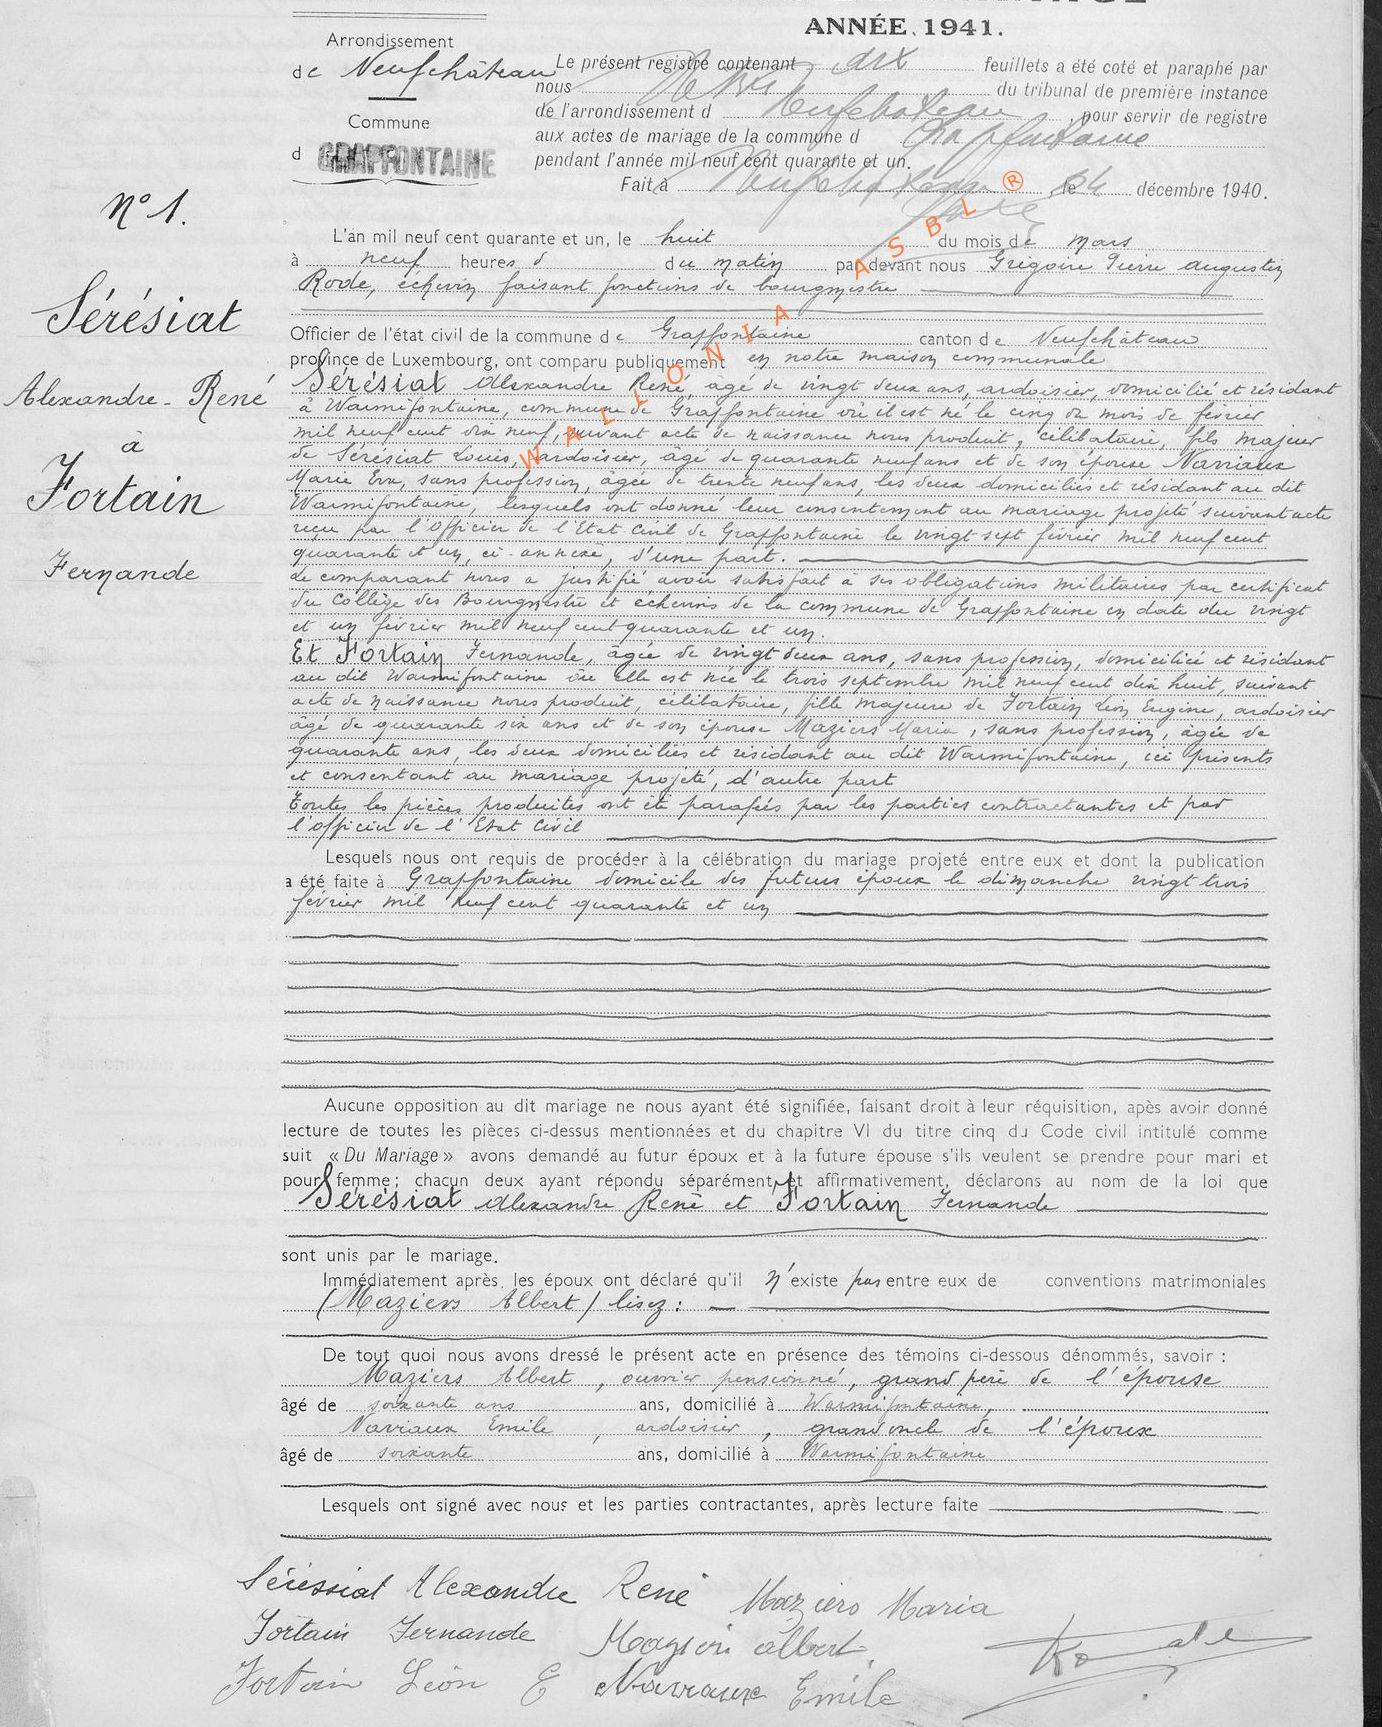 ANNÉE 1941.
Arrondissement
de Neufchâteau
Commune
d GRAPFONTAINE
Le présent registre contenant dix feuillets a été coté et paraphé par
nous du tribunal de première instance
de l'arrondissement d Neufchateau pour servir de registre
aux actes de mariage de la commune d Grapfontaine
pendant l'année mil neuf cent quarante et un.
Fait à Neufchateau le 24 décembre 1940.
WALLONIA ASBL ®
n° 1.
Sérésiat
Alexandre-René
à
Fortain
Fernande
L'an mil neuf cent quarante et un, le huit du mois de mars
à neuf heures d du matin par devant nous Grégoire Pierre Augustin
Rode, échevin faisant fonctions de bourgmestre
Officier de l'état civil de la commune de Grapfontaine canton de Neufchâteau
province de Luxembourg, ont comparu publiquement en notre maison communale
Sérésiat Alexandre René, âgé de vingt deux ans, ardoisier, domicilié et résidant
à Warmifontaine, commune de Grapfontaine où il est né le cinq du mois de février
mil neuf cent dix neuf, suivant acte de naissance nous produit, célibataire, fils majeur
de Sérésiat Louis, ardoisier, âgé de quarante neuf ans et de son épouse Navriaux
Marie Eva, sans profession, âgée de trente neuf ans, les deux domiciliés et résidant au dit
Warmifontaine, lesquels ont donné leur consentement au mariage projeté suivant acte
reçu par l'Officier de l'Etat-Civil de Grapfontaine le vingt sept février mil neuf cent
quarante et un, ci-annexé, d'une part.
Le comparant nous a justifié avoir satisfait à ses obligations militaires par certificat
du Collège des Bourgmestre et échevins de la commune de Grapfontaine en date du vingt
et un février mil neuf cent quarante et un.
Et Fortain Fernande, âgée de vingt deux ans, sans profession, domiciliée et résidant
au dit Warmifontaine où elle est née le trois septembre mil neuf cent dix huit, suivant
acte de naissance nous produit, célibataire, fille majeure de Fortain Léon Eugène, ardoisier
âgé de quarante six ans et de son épouse Maziers Maria, sans profession, âgée de
quarante ans, les deux domiciliés et résidant au dit Warmifontaine, ici présents
et consentant au mariage projeté, d'autre part
Toutes les pièces produites ont été parafées par les parties contractantes et par
l'officier de l'Etat Civil
Lesquels nous ont requis de procéder à la célébration du mariage projeté entre eux et dont la publication
a été faite à Grapfontaine domicile des futurs époux le dimanche vingt trois
février mil neuf cent quarante et un
Aucune opposition au dit mariage ne nous ayant été signifiée, faisant droit à leur réquisition, après avoir donné
lecture de toutes les pièces ci-dessus mentionnées et du chapitre VI du titre cinq du Code civil intitulé comme
suit « Du Mariage » avons demandé au futur époux et à la future épouse s'ils veulent se prendre pour mari et
pour femme ; chacun deux ayant répondu séparément et affirmativement, déclarons au nom de la loi que
Sérésiat Alexandre René et Fortain Fernande
sont unis par le mariage.
Immédiatement après, les époux ont déclaré qu'il n'existe pas entre eux de conventions matrimoniales
(Maziers Albert) lisez : —
De tout quoi nous avons dressé le présent acte en présence des témoins ci-dessous dénommés, savoir :
Maziers Albert, ouvrier pensionné, grand père de l'épouse
âgé de soixante ans ans, domicilié à Warmifontaine,
Navriaux Emile, ardoisier, grand oncle de l'époux
âgé de soixante ans, domicilié à Warmifontaine
Lesquels ont signé avec nous et les parties contractantes, après lecture faite
Séréssiat Alexandre René Maziers Maria
Fortain Fernande Maziers Albert.
Fortain Léon E Navraux Emile
Rode